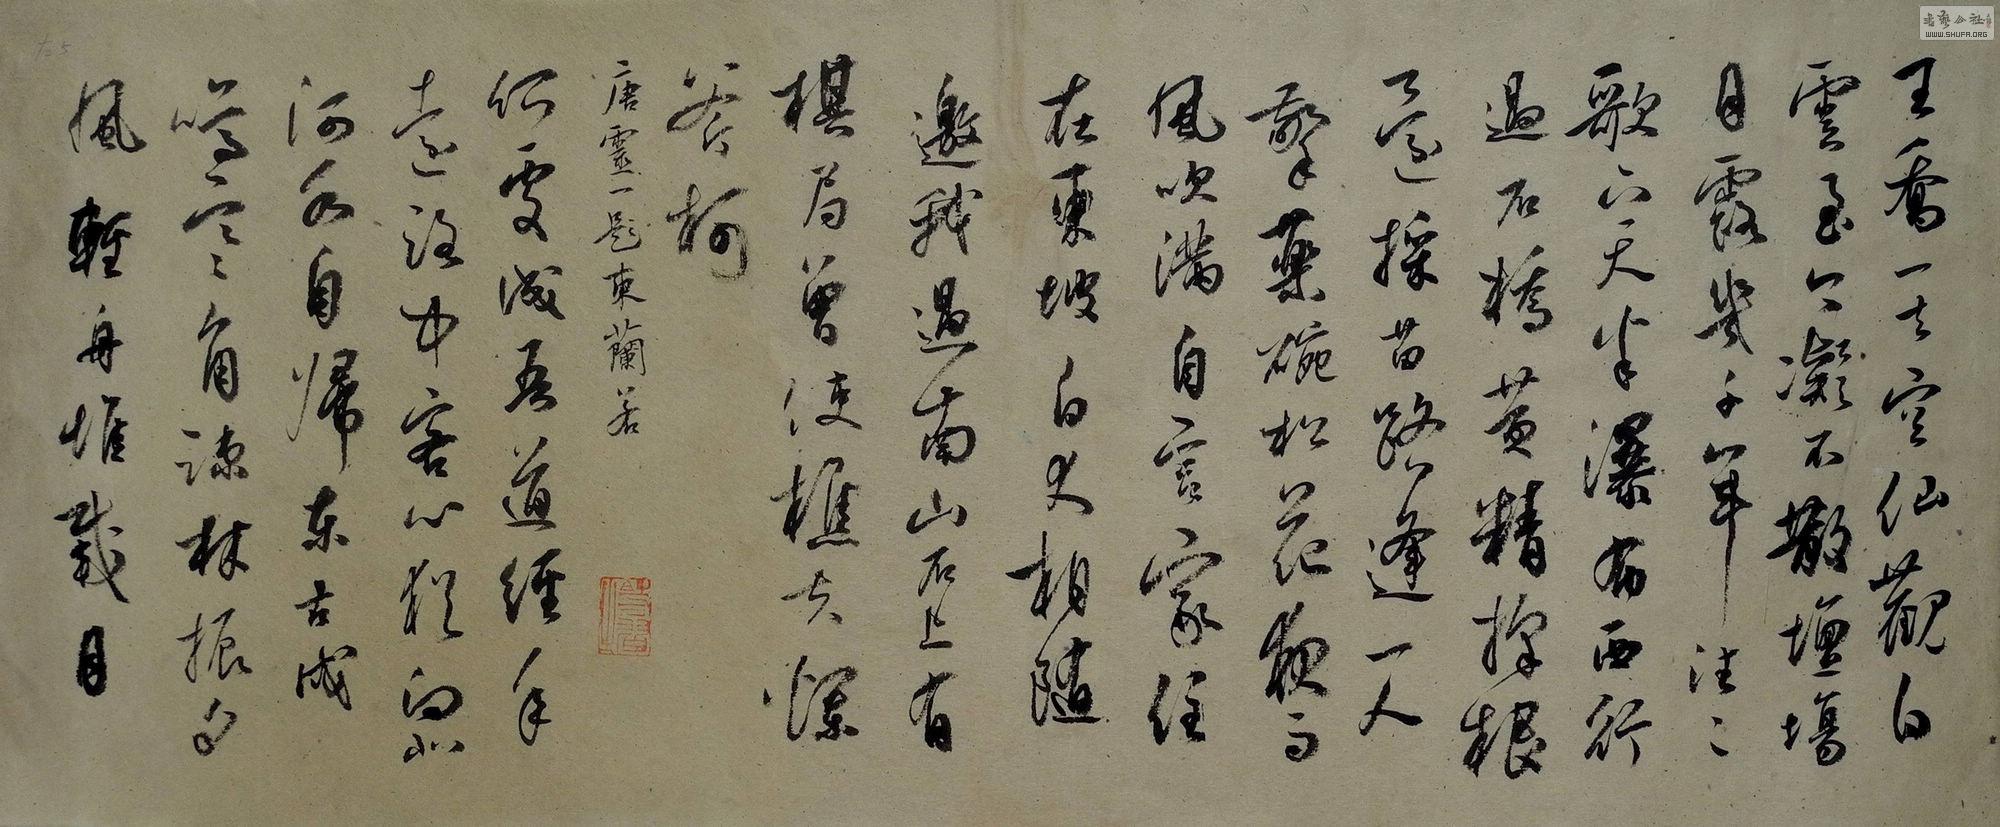 王喬一去空仙觀白
雲至今凝不散壇場
月露幾千年往〻
歌下天半瀑布西行
過石橋黃精採根
還採苗路逢一人
擎藥碗松花夜雨
風吹滿自言家住
在東坡白犬相隨
邀我過南山石上有
棋局曾使樵夫爛
斧柯
唐靈一題東蘭若
何處成吾道經年
遠路中客心猶向北
河水自歸東古戍
鳴寒〻角疎林振夕
風輕舟惟載月
書藝公社
WWW.SHUFA.ORG